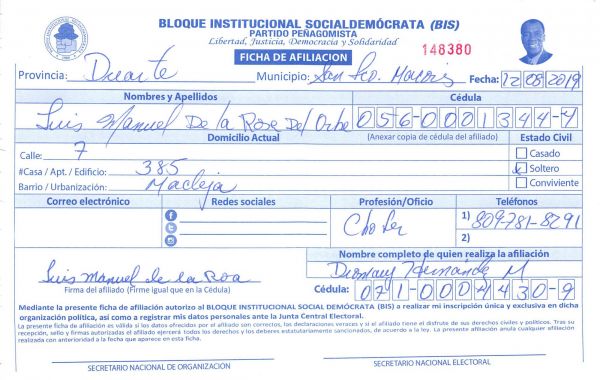 BLOQUE INSTITUCIONAL SOCIALDEMÓCRATA (BIS)
PARTIDO PEÑAGOMISTA
Libertad, Justicia, Democracia y Solidaridad
FICHA DE AFILIACION
148380
Provincia: Duarte Municipio: San Fco. Macoris Fecha: 12 08 2019
Nombres y Apellidos Cédula
Luis Manuel De la Rosa Del Orbe 056-0001344-4
Domicilio Actual (Anexar copia de cédula del afiliado) Estado Civil
Calle: 7 Casado
#Casa / Apt. / Edificio: 385 Soltero
Barrio / Urbanización: Conviviente
Correo electrónico Redes sociales Profesión/Oficio Teléfonos
Chofer 1) 809-781-8291
2)
Nombre completo de quien realiza la afiliación
Hernande M
Luis Manuel de la Rosa
Firma del afiliado (Firme igual que en la Cédula) Cédula: 071-0004430-9
Mediante la presente ficha de afiliación autorizo al BLOQUE INSTITUCIONAL SOCIAL DEMÓCRATA (BIS) a realizar mi inscripción única y exclusiva en dicha
organización política, así como a registrar mis datos personales ante la Junta Central Electoral.
La presente ficha de afiliación es válida si los datos ofrecidos por el afiliado son correctos, las declaraciones veraces y si el afiliado tiene el disfrute de sus derechos civiles y políticos. Tras su
recepción, sello y firmas autorizadas el afiliado ejercerá todos los derechos y los deberes estatutariamente sancionados, de acuerdo a la ley. La presente afiliación anula cualquier afiliación
realizada con anterioridad a la fecha que aparece en esta ficha.
SECRETARIO NACIONAL DE ORGANIZACIÓN SECRETARIO NACIONAL ELECTORAL